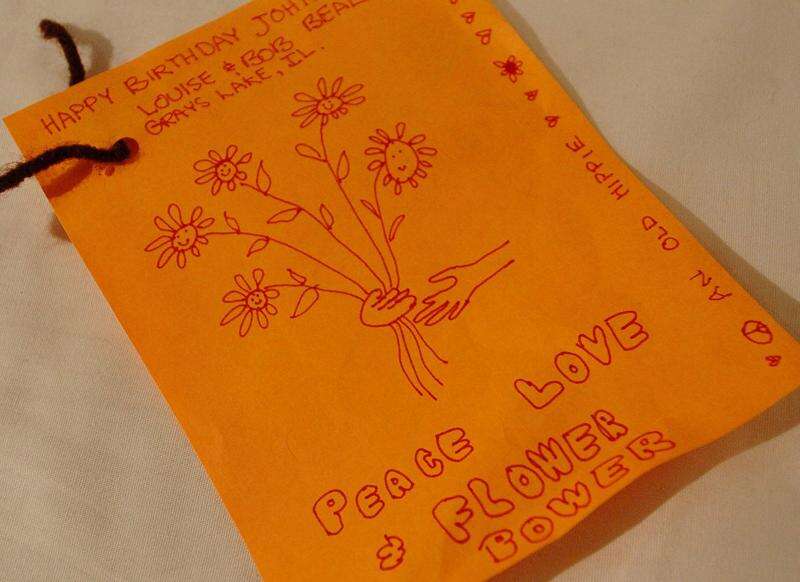 HAPPY BIRTHDAY JOHN
LOUISE & BOB BEAL
GRAYS LAKE, IL.
AN OLD HIPPIE
PEACE LOVE
& FLOWER
POWER